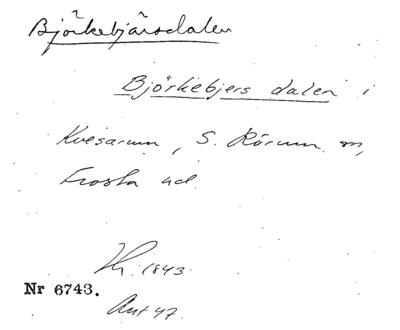 Björkebjärsdalen
Björkebjers dalen i
Kvesarum, S. Rörum m,
Frosta hd.
Hr. 1843
Nr 6743.
Ant 47.